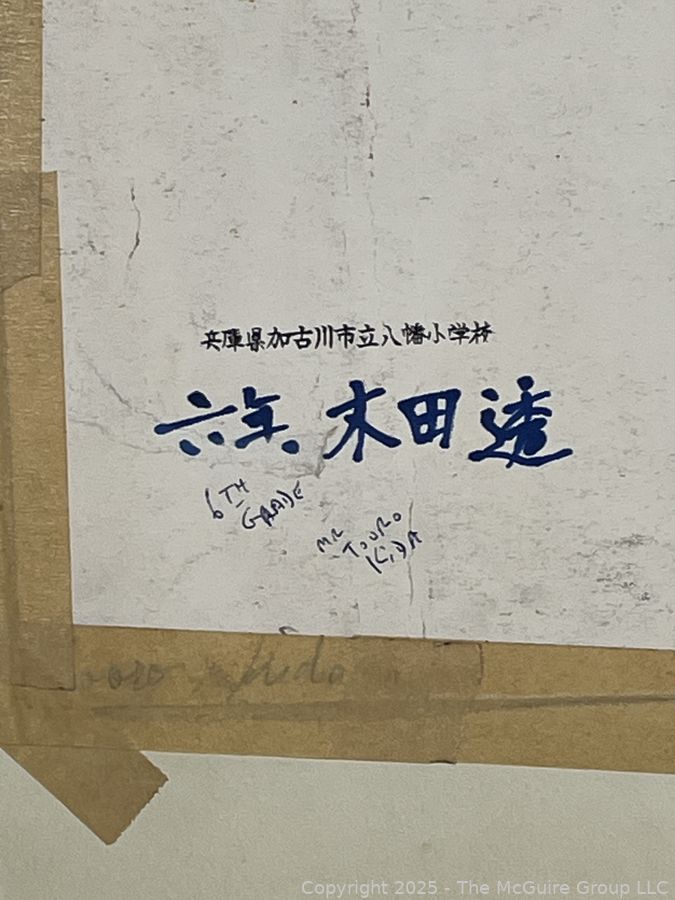 兵庫県加古川市立八幡小学校
六年 木田透
6TH
GRADE
MR
TOORO
KIDA
Kido
Copyright 2025 - The McGuire Group LLC